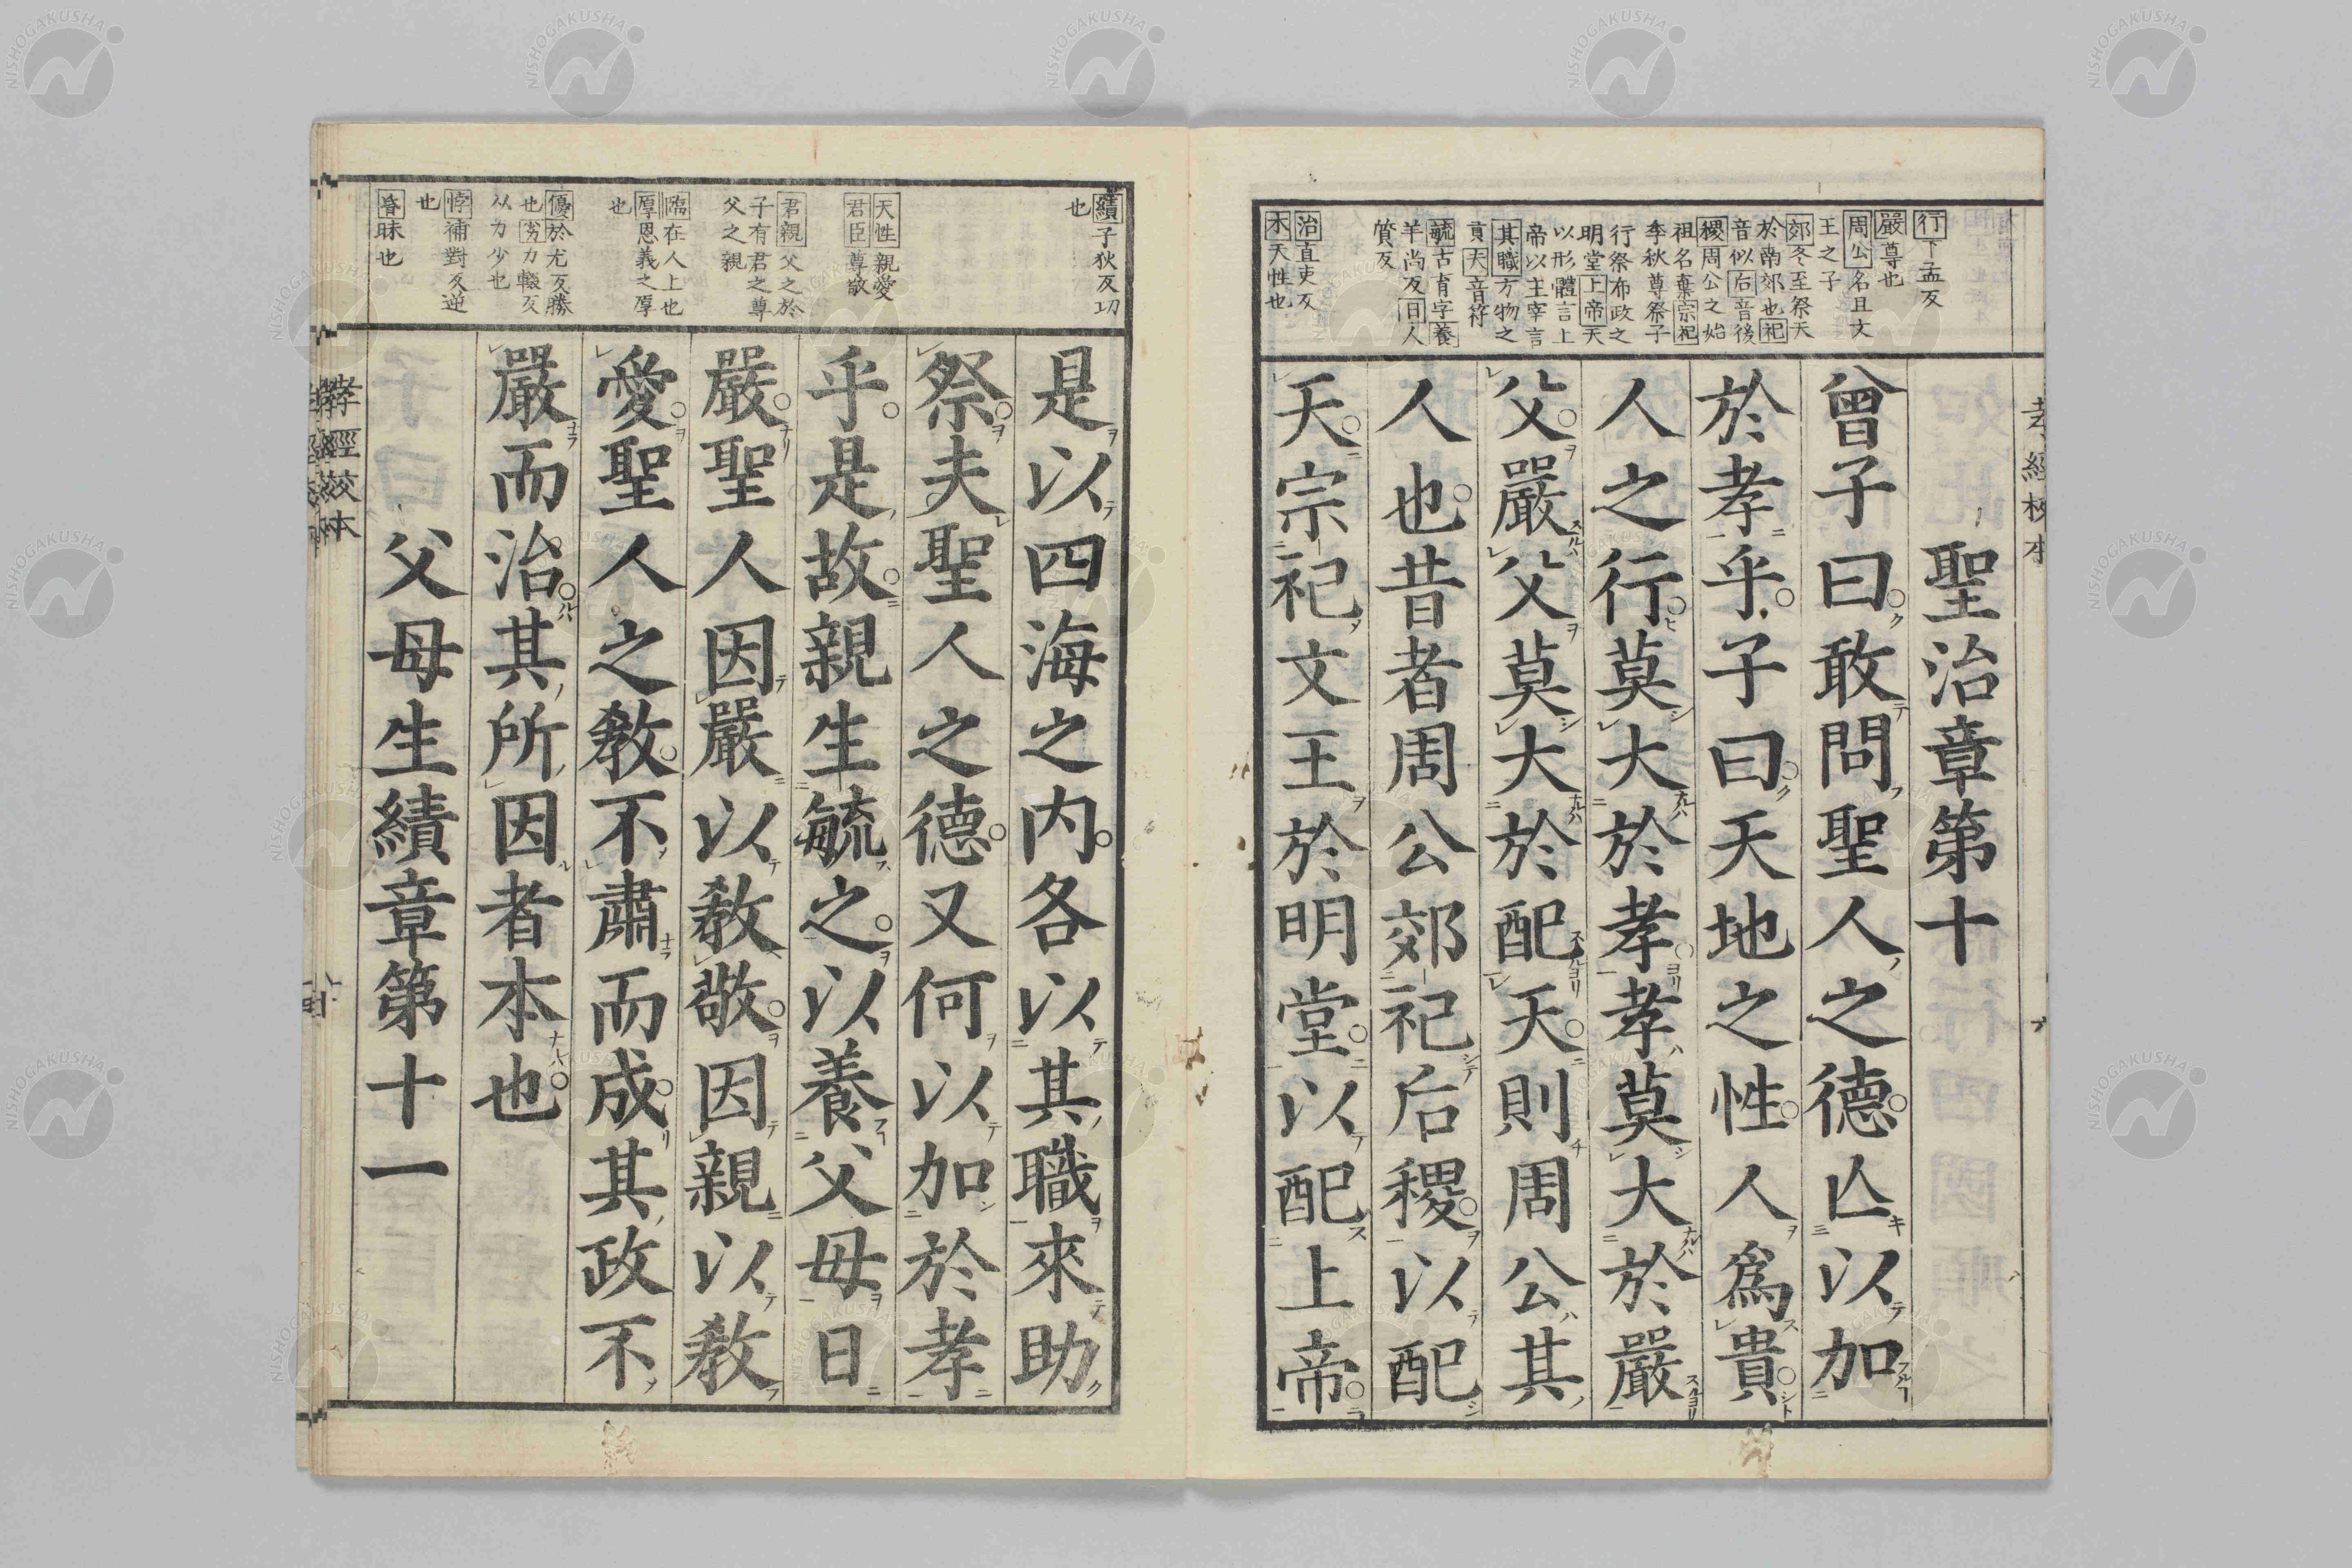 孝經校本
行下孟反
嚴尊也
周公名旦文
王之子
郊冬至祭天
於南郊也祀
音似后音後
稷周公之始
祖名棄宗祀
季秋尊祭子
行祭布政之
明堂上帝天
以形體言上
帝以主宰言
其職方物之
貢夫音符
毓古育字養
羊尚反日人
質反
治直吏反
本天性也
聖治章第十
曾子曰敢問聖人之德亾以加
於孝乎子曰天地之性人爲貴
人之行莫大於孝孝莫大於嚴
父嚴父莫大於配天則周公其
人也昔者周公郊祀后稷以配
天宗祀文王於明堂以配上帝
績子狄反功
也
天性親愛
君臣尊敬
君親父之於
子有君之尊
父之親
臨在人上也
厚恩義之厚
也
優於尤反勝
也劣力輟反
以力少也
悖補對反逆
也
昬昧也
是以四海之内各以其職來助
祭夫聖人之德又何以加於孝
乎是故親生毓之以養父母日
嚴聖人因嚴以敎敬因親以敎
愛聖人之敎不肅而成其政不
嚴而治其所因者本也
父母生績章第十一
孝經校本
NISHOGAKUSHA